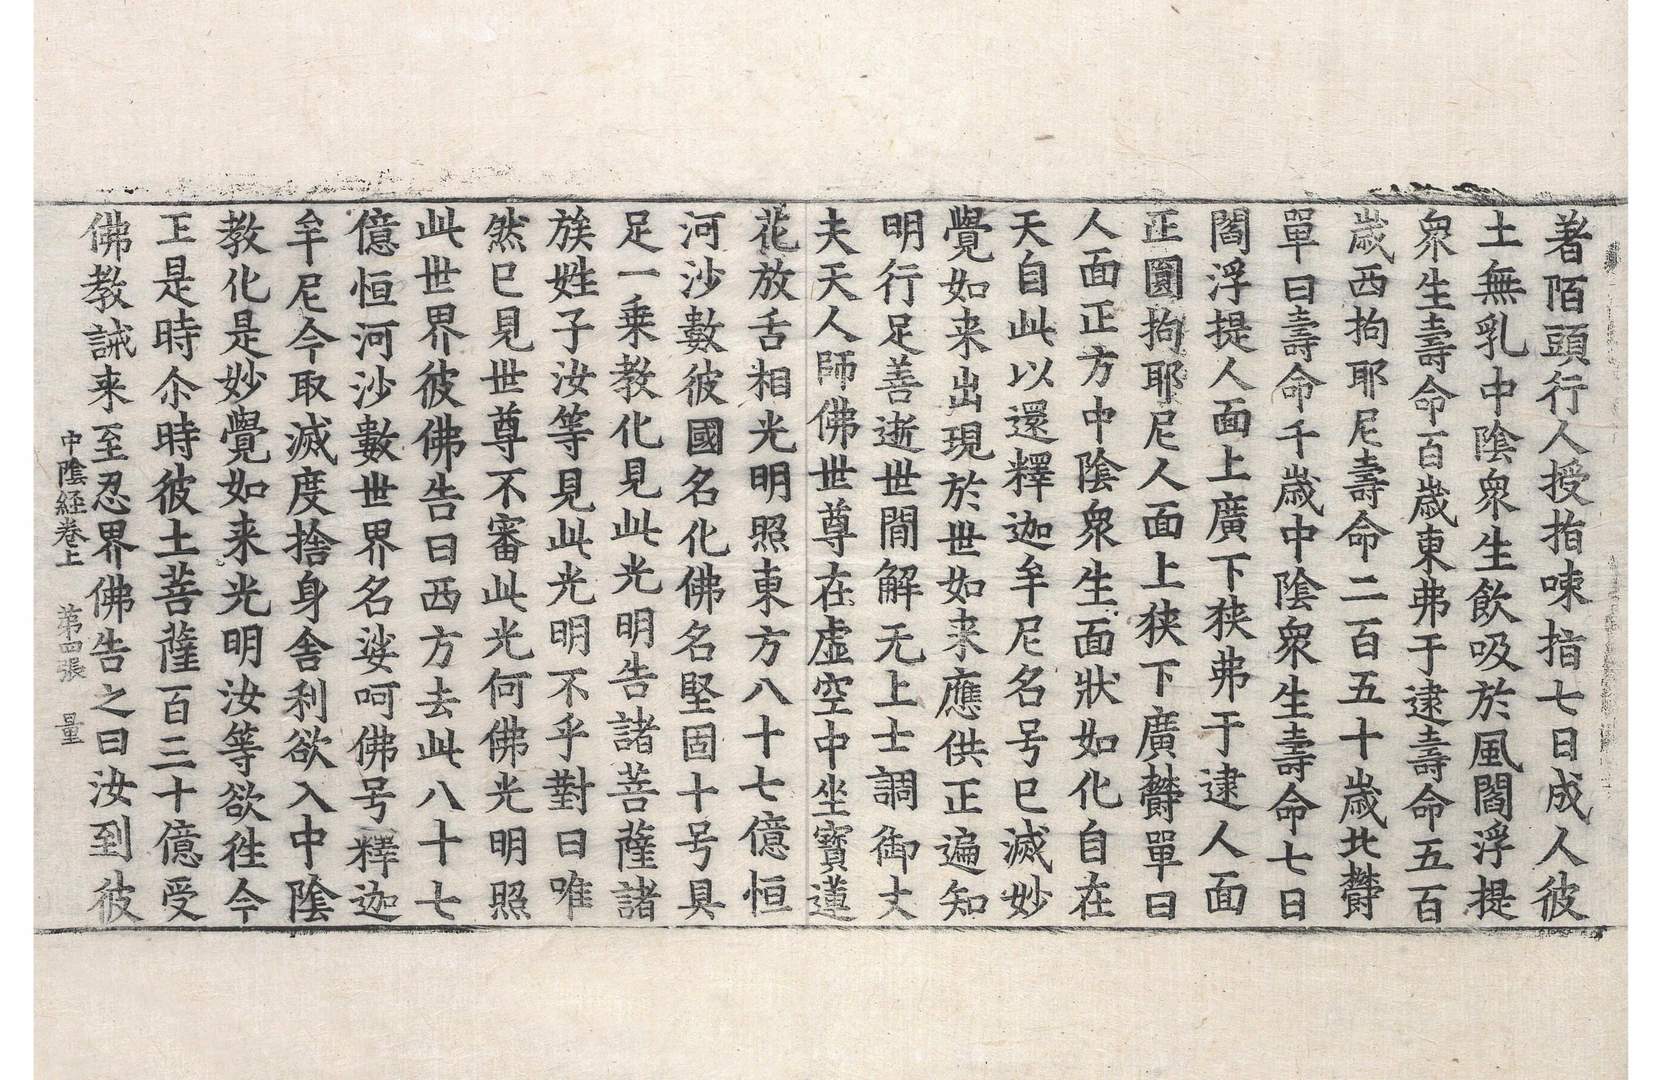 著陌頭行人授指唻指七日成人彼
土無乳中陰衆生飲吸於風閻浮提
衆生壽命百歲東弗于逮壽命五百
歲西拘耶尼壽命二百五十歲北欝
單曰壽命千歲中陰衆生壽命七日
閻浮提人面上廣下狹弗于逮人面
正圓拘耶尼人面上狹下廣欝單曰
人面正方中陰衆生面狀如化自在
天自此以還釋迦牟尼名号已滅妙
覺如来出現於世如来應供正遍知
明行足善逝世間解无上士調御丈
夫天人師佛世尊在虛空中坐寳蓮
花放舌相光明照東方八十七億恒
河沙數彼國名化佛名堅固十号具
足一乗教化見此光明告諸菩薩諸
族姓子汝等見此光明不乎對曰唯
然已見世尊不審此光何佛光明照
此世界彼佛告曰西方去此八十七
億恒河沙數世界名娑呵佛号釋迦
牟尼今取滅度捨身舍利欲入中陰
教化是妙覺如来光明汝等欲徃今
正是時尒時彼土菩薩百三十億受
佛教誡来至忍界佛告之曰汝到彼
中陰経卷上 第四張 量